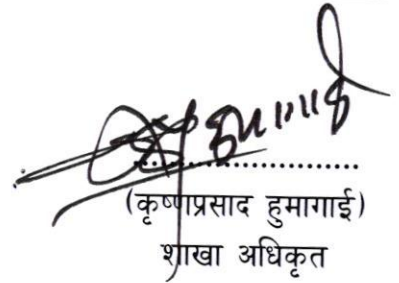 हुमागाई
....................
(कृष्णप्रसाद हुमागाई)
शाखा अधिकृत